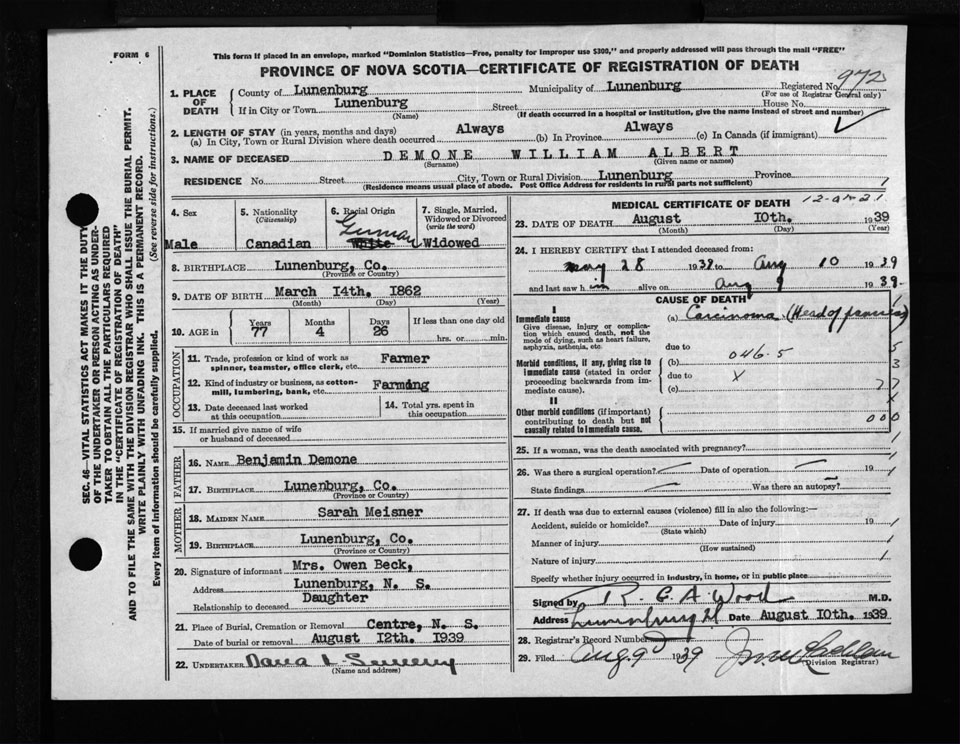 FORM 6
This form if placed in an envelope, marked "Dominion Statistics—Free, penalty for improper use $300," and properly addressed will pass through the mail "FREE"
PROVINCE OF NOVA SCOTIA—CERTIFICATE OF REGISTRATION OF DEATH
972
1. PLACE OF DEATH
County of Lunenburg Municipality of Lunenburg Registered No.
(For use of Registrar General only)
If in City or Town Lunenburg Street House No.
(Name) (If death occurred in a hospital or institution, give the name instead of street and number)
2. LENGTH OF STAY (in years, months and days)
(a) In City, Town or Rural Division where death occurred Always (b) In Province Always (c) In Canada (if immigrant)
3. NAME OF DECEASED DEMONE WILLIAM ALBERT
(Surname) (Given name or names)
RESIDENCE No. Street City, Town or Rural Division Lunenburg Province
(Residence means usual place of abode. Post Office Address for residents in rural parts not sufficient)
4. Sex
Male
5. Nationality
(Citizenship)
Canadian
6. Racial Origin
German
White
7. Single, Married, Widowed or Divorced
(write the word)
Widowed
8. BIRTHPLACE Lunenburg, Co.
(Province or Country)
9. DATE OF BIRTH March 14th. 1862
(Month) (Day) (Year)
10. AGE in Years Months Days If less than one day old
77 4 26 hrs. or min.
OCCUPATION
11. Trade, profession or kind of work as spinner, teamster, office clerk, etc. Farmer
12. Kind of industry or business, as cotton-mill, lumbering, bank, etc. Farming
13. Date deceased last worked at this occupation
14. Total yrs. spent in this occupation
15. If married give name of wife or husband of deceased
FATHER
16. NAME Benjamin Demone
17. BIRTHPLACE Lunenburg, Co.
(Province or Country)
MOTHER
18. MAIDEN NAME Sarah Meisner
19. BIRTHPLACE Lunenburg, Co.
(Province or Country)
20. Signature of informant Mrs. Owen Beck,
Address Lunenburg, N. S.
Relationship to deceased Daughter
21. Place of Burial, Cremation or Removal Centre, N. S.
Date of burial or removal August 12th. 1939
22. UNDERTAKER
(Name and address)
MEDICAL CERTIFICATE OF DEATH
23. DATE OF DEATH August 10th. 1939
(Month) (Day) (Year)
24. I HEREBY CERTIFY that I attended deceased from:
May 28 1939 to Aug 10 1939
and last saw him alive on Aug 9 1939
CAUSE OF DEATH
I
Immediate cause
Give disease, injury or complication which caused death, not the mode of dying, such as heart failure, asphyxia, asthenia, etc.
(a) Carcinoma (Head of pancreas)
due to
Morbid conditions, if any, giving rise to immediate cause (stated in order proceeding backwards from immediate cause).
(b) 046.5
due to X
(c)
II
Other morbid conditions (if important) contributing to death but not causally related to immediate cause.
000
25. If a woman, was the death associated with pregnancy?
26. Was there a surgical operation? Date of operation 19
State findings Was there an autopsy?
27. If death was due to external causes (violence) fill in also the following:—
Accident, suicide or homicide? Date of injury 19
(State which)
Manner of injury
(How sustained)
Nature of injury
Specify whether injury occurred in industry, in home, or in public place
Signed by R. C. A. Wood M.D.
Address Lunenburg Date August 10th. 1939
28. Registrar's Record Number
29. Filed Aug. 9 1939
(Division Registrar)
SEC. 46—VITAL STATISTICS ACT MAKES IT THE DUTY
OF THE UNDERTAKER OR PERSON ACTING AS UNDER-
TAKER TO OBTAIN ALL THE PARTICULARS REQUIRED
IN THE "CERTIFICATE OF REGISTRATION OF DEATH"
AND TO FILE THE SAME WITH THE DIVISION REGISTRAR WHO SHALL ISSUE THE BURIAL PERMIT.
WRITE PLAINLY WITH UNFADING INK. THIS IS A PERMANENT RECORD.
Every item of information should be carefully supplied. (See reverse side for instructions.)